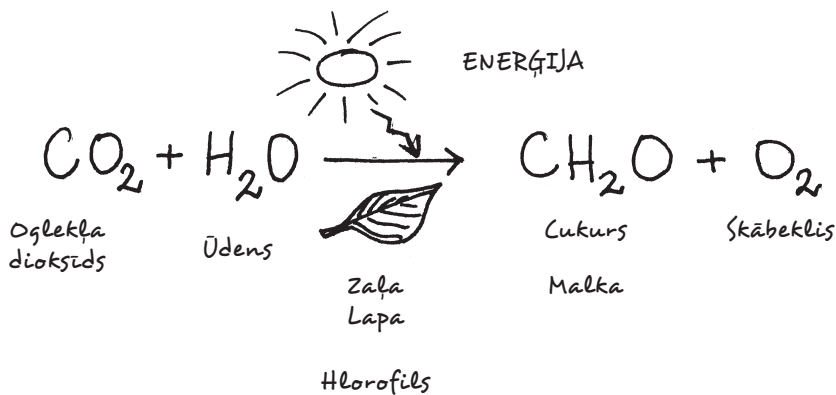 ENERĢIJA
CO₂ + H₂O → CH₂O + O₂
Oglekļa
dioksīds
Ūdens
Zaļa
Lapa
Hlorofils
Cukurs
Malka
Skābeklis